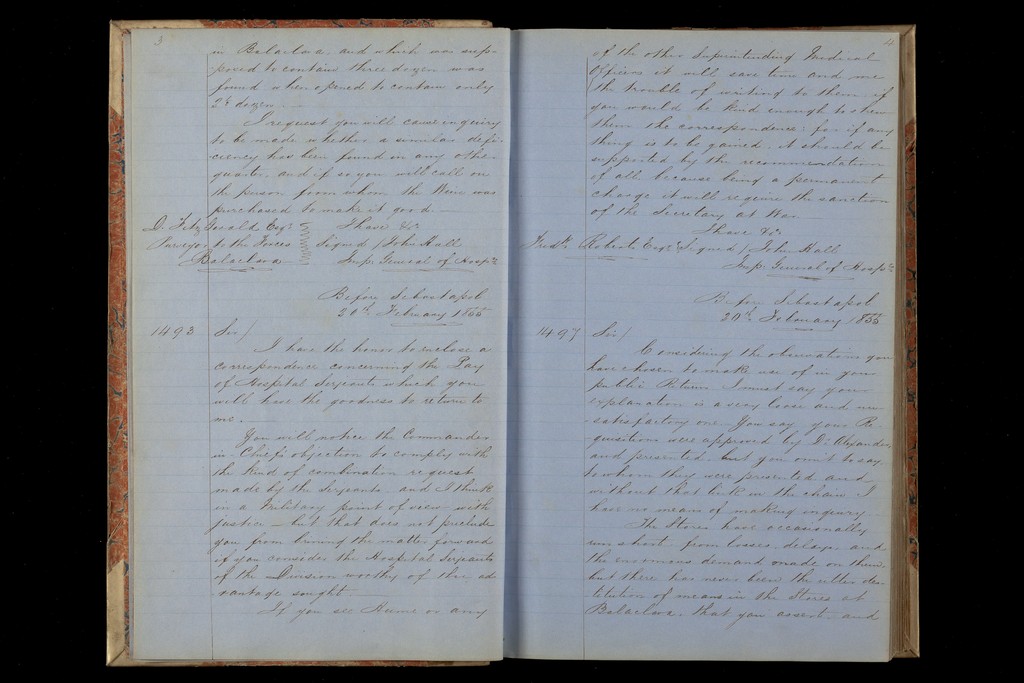 3
in Balaclava, and which was sup-
-posed to contain three dozen was
found when opened to contain only
2½ dozen.
I request you will cause enquiry
to be made whether a similar defi-
ciency has been found in any other
quarter, and if so you will call on
the person from whom the Wine was
purchased to make it good.—
D. Fitz Gerald Esqr. I have &c.
Purveyor to the Forces Signed / John Hall
Balaclava Insp. General of Hosp.ls
Before Sebastopol
20th. February 1855
1493 Sir/
I have the honor to enclose a
correspondence concerning the Pay
of Hospital Serjeants which you
will have the goodness to return to
me.—
You will notice the Commander
in-Chief's objection to comply with
the kind of combination request
made by the Serjeants, and I think
in a Military point of view with
justice — but that does not preclude
you from bringing the matter forward
if you consider the Hospital Serjeants
of the Division worthy of the ad-
vantage sought.
If you see Hume or any
4
of the other Superintending Medical
Officers it will save time and me
the trouble of writing to them if
you would be kind enough to shew
them the correspondence; for if any
thing is to be gained, it should be
supported by the recommendation
of all, because being a permanent
charge it will require the sanction
of the Secretary at War.
I have &c.
Fredk. Roberts Esqr. Signed / John Hall
Insp. General of Hosp.ls
Before Sebastopol
20th. February 1855
1497 Sir/
Considering the observations you
have chosen to make use of in your
public Return I must say your
explanation is a very loose and un-
-satisfactory one. You say your Re-
quisitions were approved by Dr. Alexander,
and presented, but you omit to say
to whom they were presented and
without that link in the chain I
have no means of making inquiry.
The Stores have occasionally
run short from losses, delays and
the enormous demand made on them,
but there has never been the utter des-
titution of means in the Stores at
Balaclava, that you assert and